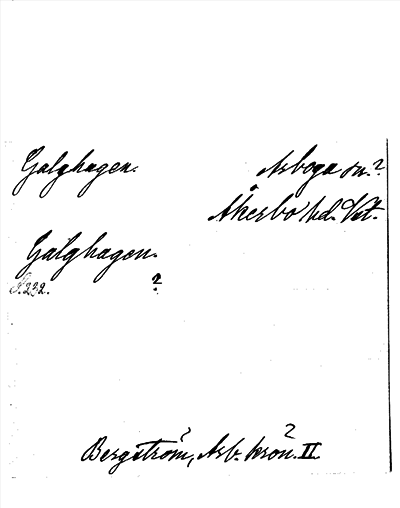 Galghagen. Arboga sn.?
Åkerbo hd. Vstm.
Galghagen.
S. 232. ?
Bergström, Arb. krön. II.